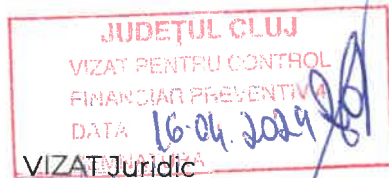 JUDEȚUL CLUJ
VIZAT PENTRU CONTROL
FINANCIAR PREVENTIV
DATA 16.04.2024
VIZAT Juridic